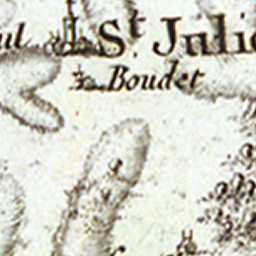 St Julie
Boudet